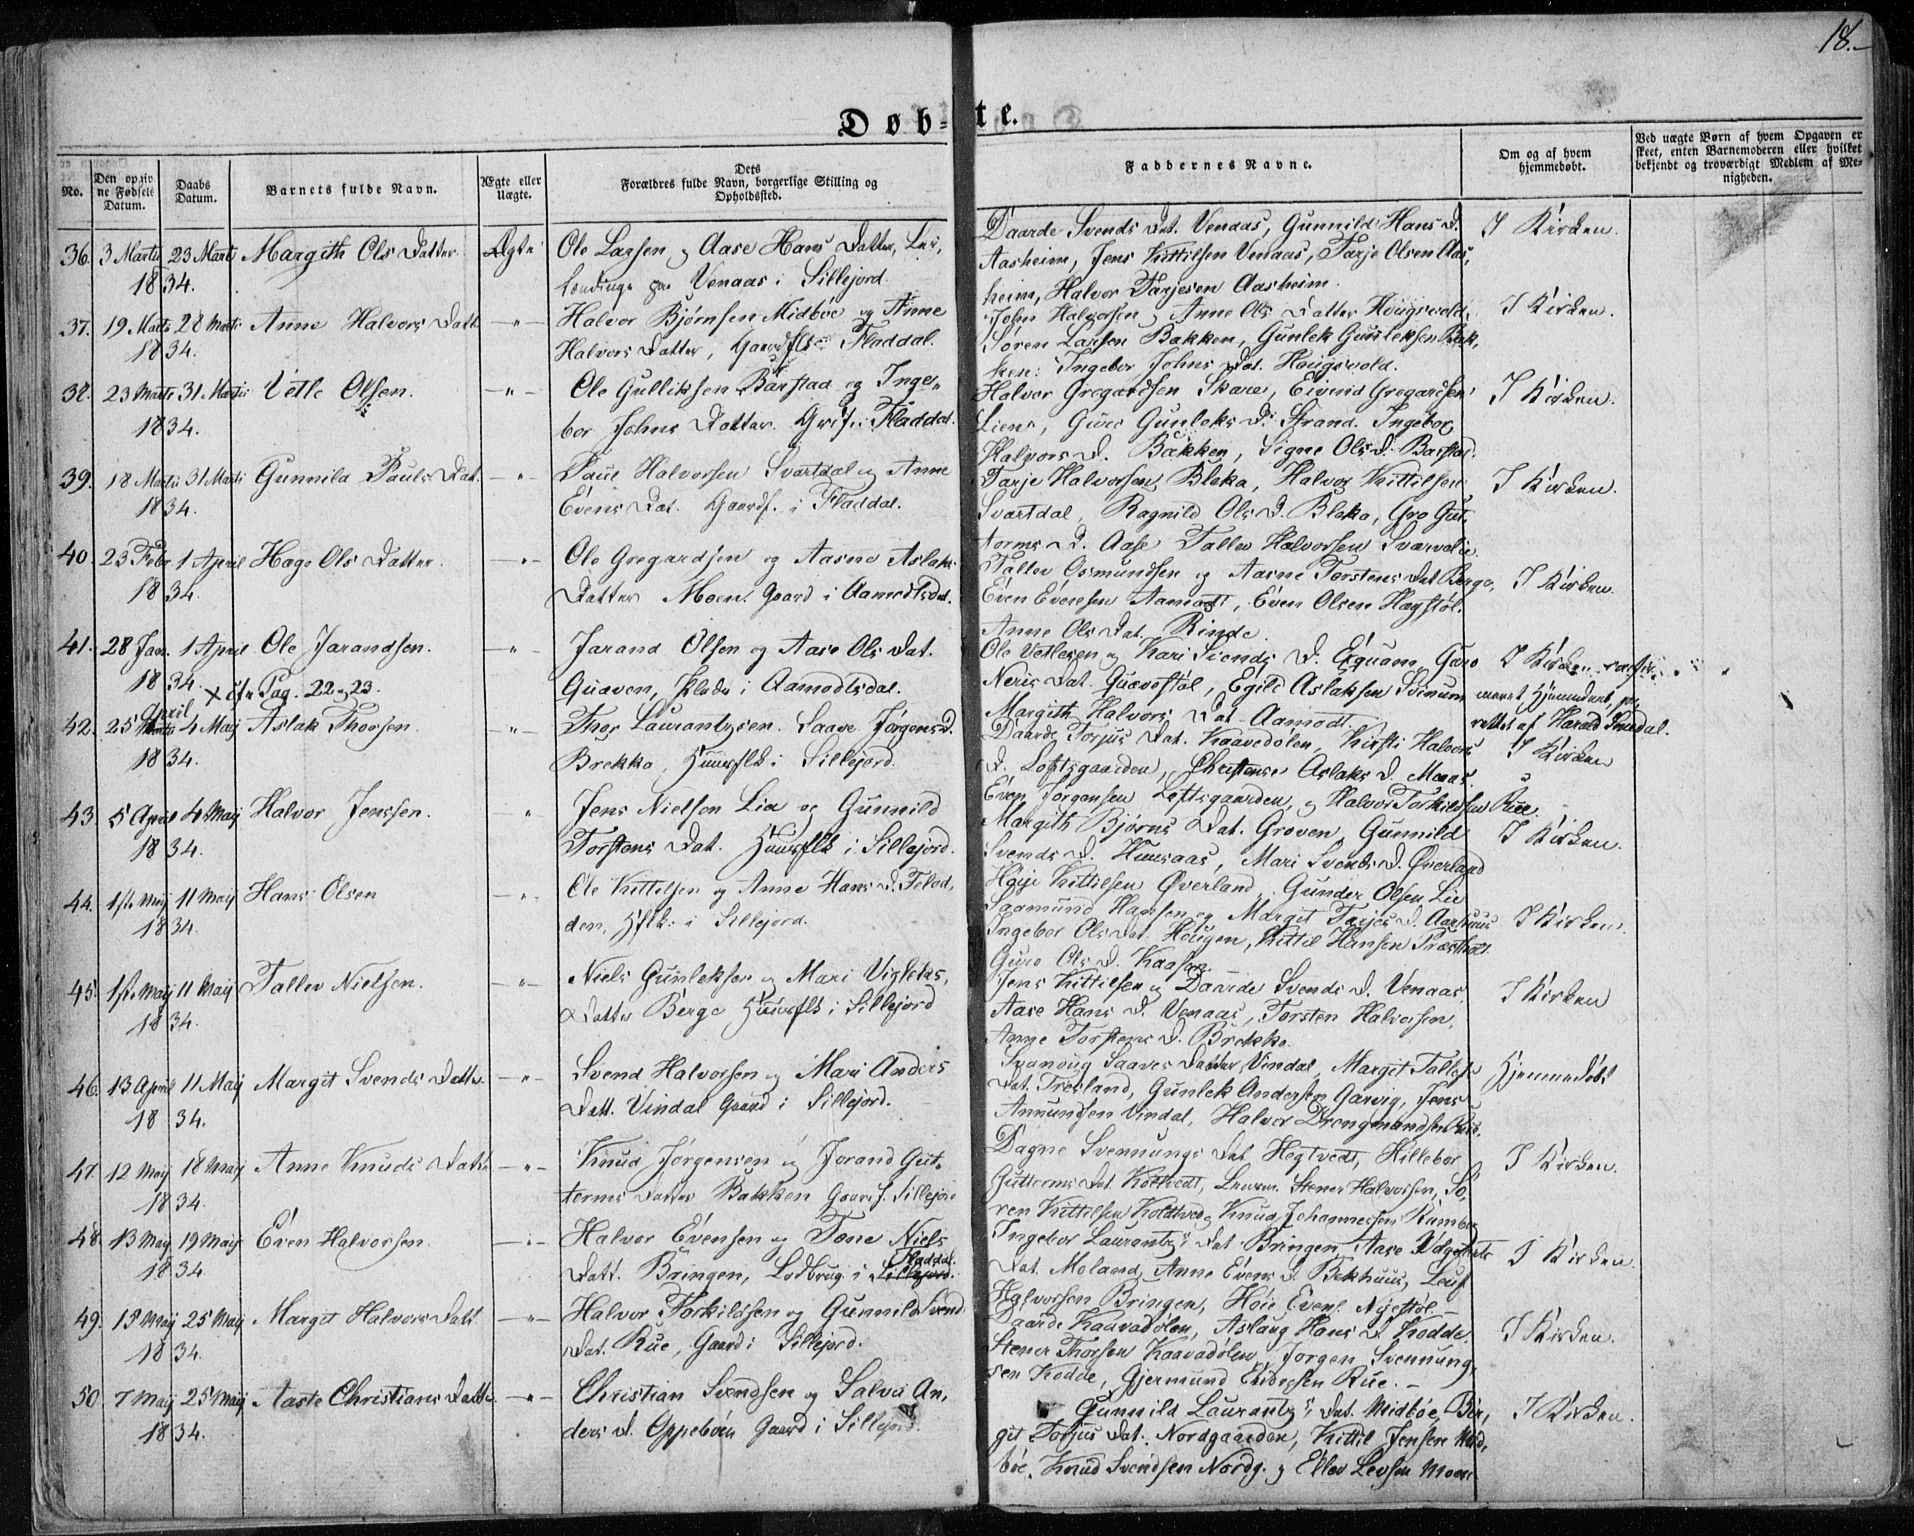 18.
Døb- te.
No.
Den opgivne Fødsels Datum.
Daabs Datum.
Barnets fulde Navn.
Ægte eller Uægte.
Dets Forældres fulde Navn, borgerlige Stilling og Opholdssted.
Faddernes Navne.
Om og af hvem hjemmedøbt.
Ved uægte Børn af hvem Opgaven er skeet, enten Barnemoderen eller hvilket bekjendt og troværdigt Medlem af Menigheden.
36. 3 Martii 23 Marti Margith Ols Datter Ægte Ole Larsen og Aase Hans Datter,
1834. paa Venaas i Sillejord
Daarde Svends Dat. Venaas, Gunnild Hans D. I Kirken.
Aasheim, Jens Kittilsen Venaas, Tarje Olsen Aas,
heim, Halvor Tarjesen Aasheim.
37. 19 Marti 28 Marti Anne Halvors Datt. -"- Halvor Bjørnsen Midbøe og Anne
1834. Halvors Datter, Gaardflk: Fladdal.
John Halvorsen og Anne Ols Datter Hougsvold, I Kirken.
Søren Larsen Bakken, Gunlek Gunleksen Bak,
ken: Ingebor Johns Dat. Hougsvold.
38. 23 Marti 31 Martii Vetle Olsen. -"- Ole Gulliksen Barstad og Inge,
1834. bor Johns Datter. i Fladdal.
Halvor Gregardsen Skare, Eivind Gregardsen I Kirken.
Lien, Guro Gunleks D: Strand. Ingebor
Halvors D. Bakken, Signe Ols D. Barstad.
39. 18 Martii 31 Marti Gunnila Pauls Dat. -"- Paul Halvorsen Svartdal og Anne
1834. Evens Dat. Gaardf. i Fladdal.
Tarje Halvorsen Bleka, Halvor Kittilsen I Kirken.
Svartdal, Ragnild Ols D. Bleka, Gro Gut,
torms D. Aase Tallev Halvorsen
40. 23 Febr 1 April Hage Ols Datter. -"- Ole Gregardsen og Aasne Aslaks
1834. Datter Moen. Gaard i Aamodtsdal.
Tallev Osmundsen og Aasne Torstens Dat Berge, I Kirken.
Even Evensen Aamodt, Even Olsen Hægstøl.
Anne Ols Dat. Rinde.
41. 28 Jan. 1 April Ole Jarandsen. -"- Jarand Olsen og Aase Ols Dat.
1834. Pag. 22 og 23. i Aamodtsdal.
Ole Vetlesen og Kari D. Guro I Kirken
Neris Dat. Egild Aslaksen Svinum
Margith Halvors Dat Aamodt. rettet af Harald
42. 25 April 4 Maij Aslak Thorsen. -"- Thor Laurantzsen. Saave Jørgens D.
1834. Brekka, Huusflk i Sillejord.
Daarde Torjus Dat. Kaavedølen, Kirsti Halvors I Kirken
D. Loftsgaarden, Christense Aslaks D. Moen
Even Jørgensen Loftsgaarden, og Halvor Torkildsen Rue.
43. 5 April 4 Maij Halvor Jenssen. " Jens Nielsen Lia og Gunnild
1834. Torstens Dat. Huusflk i Sillejord.
Margith Bjørns Dat. Groven, Gunnild I Kirken.
Svends D. Huusaas, Mari Svends D. Øverland
Kittilsen Øverland, Gunder Olsen Lie
44. 1ste Maij 11 Maij Hans Olsen -"- Ole Kittelsen og Anne Hans D. Flad,
1834. den, Hflk: i Sillejord.
Saamund Hansen og Margit Tarjes D. Aarhuus I Kirken.
Ingebor Ols Dat. Hougen, Kittil Hansen
Guro Ols D. Kaasen.
45. 1ste Maij 11 Maij Tallev Nielsen. -"- Niels Gunleksen og Mari Vigleks,
1834. Datter Berge Huusflk i Sillejord
Jens Kittilsen og Daarde Svends D. Venaas. I Kirken
Aase Hans D. Venaas, Torsten Halvorsen,
Anne Torstens D. Brekka.
46. 13 April 11 Maij Margit Svends Datter -"- Svend Halvorsen og Mari Anders
1834. Datt. Vindal Gaard i Sillejord.
Svanoug Saaves Datter Vindal, Margit Tallefs Hjemmedøbt
Dat. Tresland, Gunlek Andersen Garvig, Jens
Amundsen Vindal, Halvor Drengmandsen
47. 12 Maij 18 Maij Anne Knuds Datt. -"- Knud Jørgensen og Jorand Gut,
1834. torms Datter Bakken Gaard. Sillejord
Dagne Svennungs Dat Hegtvedt, Hillebor I Kirken.
Guttorms Dat Stener Halvorsen, Sø,
ren Kittilsen og Knud Johannessen
48. 13 Maij 19 Maij Even Halvorsen. -"- Halvor Evensen og Tone Niels
1834. Datt. Bringen, Lodbrug i Sillejord. Fladdal.
Ingebor Laurantz's Dat Bringen, Aase I Kirken
Dat. Moland, Anne Evens D. Bekhuus, Leuf
Halvorsen Bringen, Høie Evens. Nystøl.
49. 15 Maij 25 Maij Margit Halvors Datt. -"- Halvor Torkildsen og Gunnild Svend
1834. Dat. Rue, Gaard i Sillejord.
Daarde Kaavadølen, Aslaug Hans D. Kodde. I Kirken.
Stener Thorsen Kaavadølen, Jørgen Svennung,
sen Kodde, Gjermund Endresen Rue.
50. 7 Maij 25 Maij Aaste Christians Datter -"- Christian Svendsen og Salvei An,
1834. ders D. Oppebøen Gaard i Sillejord.
Gunnild Laurantz's Dat. Midbøe, Bir, I Kirken.
git Torjus Dat. Nordgaarden, Kittil Jensen Mid,
bøe. Knud Svendsen Nordg. og Ellev Levsen Moen